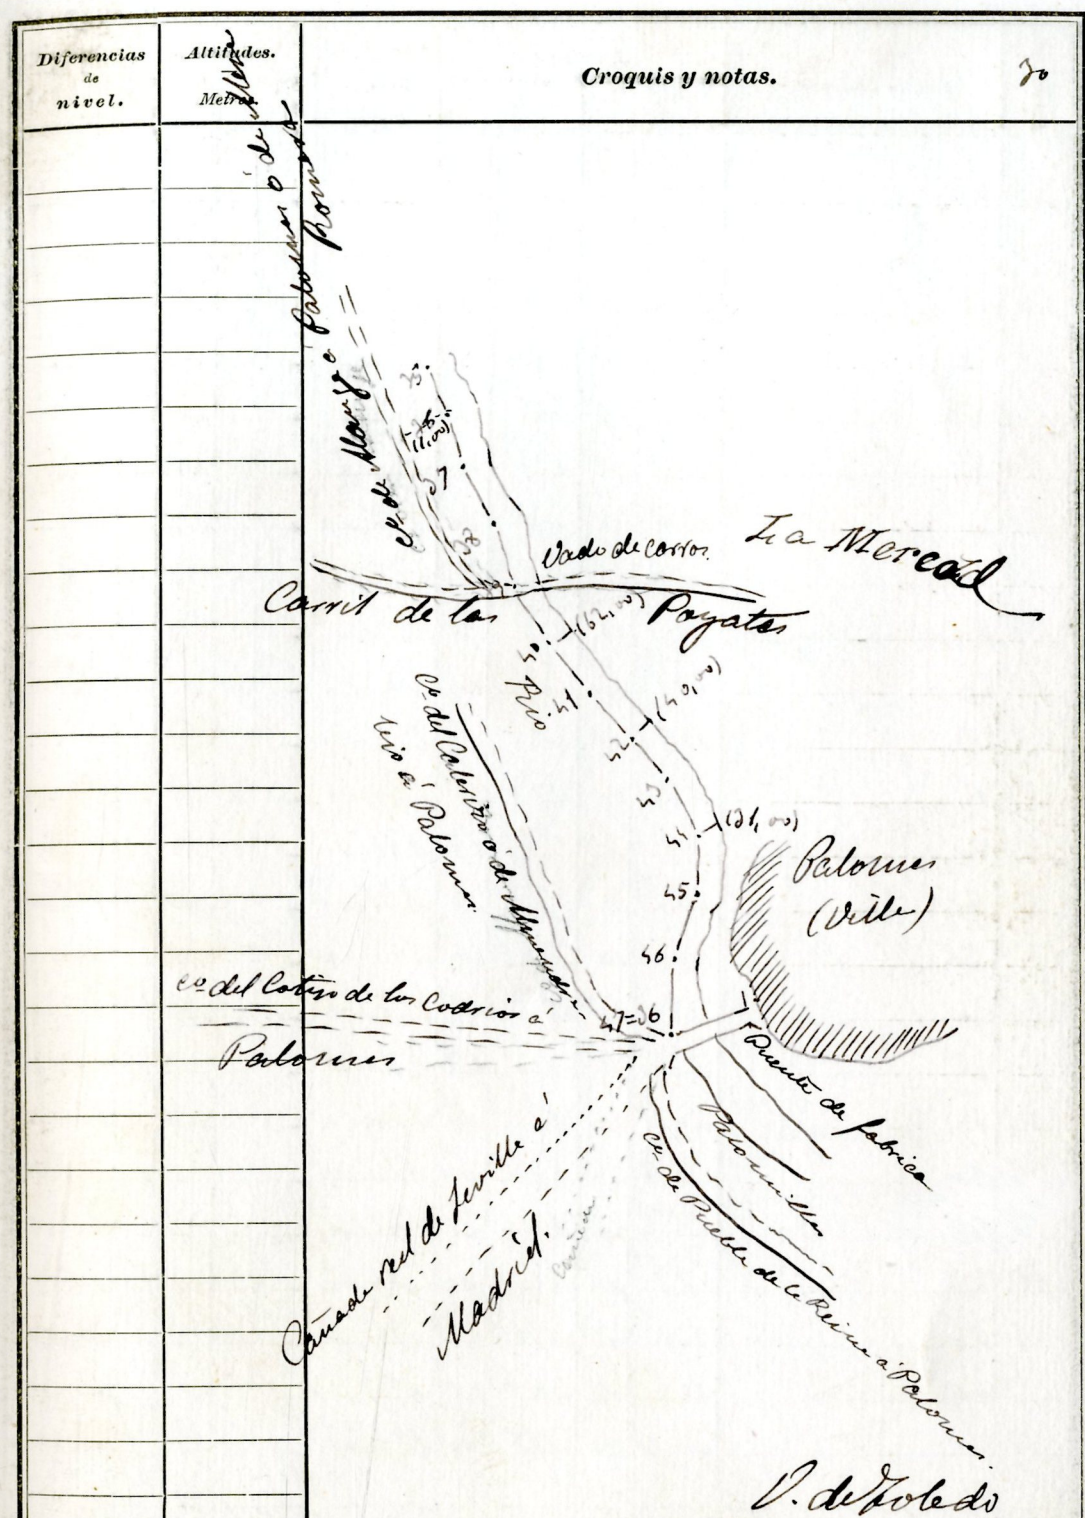 Diferencias
de
nivel.
Altitudes.
Metros.
Croquis y notas.
30
Co de Alange a Palomas ó de Mera
Romera
(1,00)
37
Vado de carros.
La Merced
Carril de los Poyatos
(62,00)
40
Rio
41
(40,00)
42
43
44
(21,00)
45
46
47=36
Palomas
(Villa)
Co del Calerizo ó de Almendra-
lejo á Palomas.
Co del Cotizo de los Codrios á
Palomas
Puente de fabrica
Palomillas
Co de Puebla de la Reina á Palomas.
Cañada real de Sevilla á
Madrid.
V. de Toledo